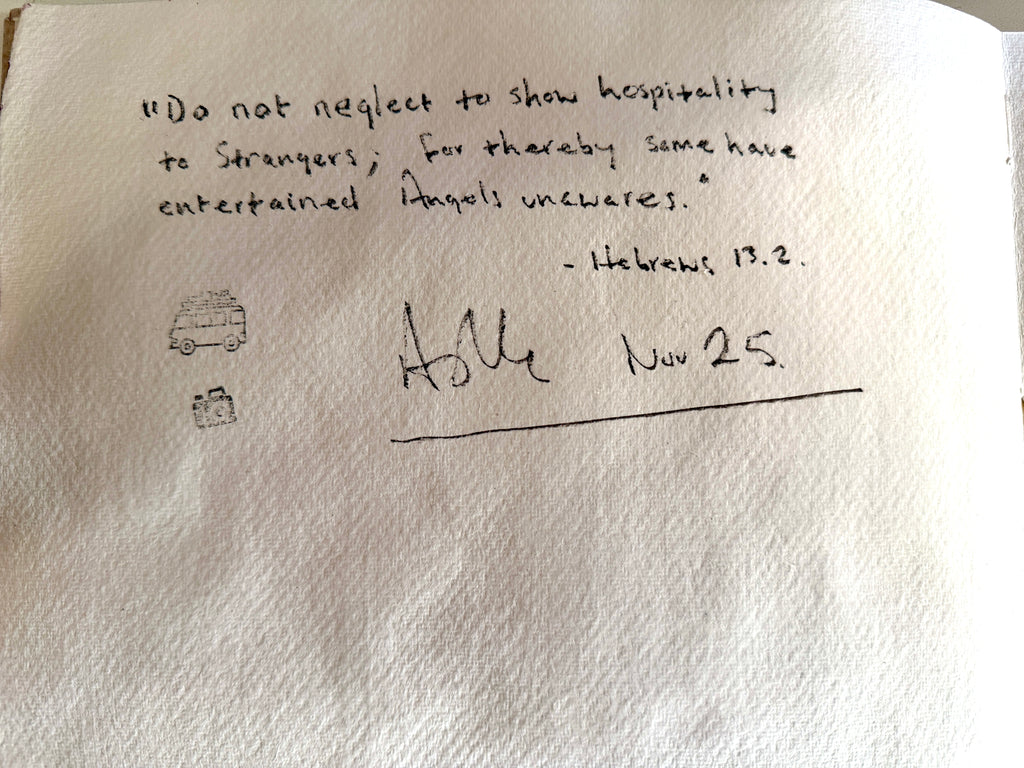 "Do not neglect to show hospitality
to Strangers; for thereby some have
entertained Angels unawares."
- Hebrews 13.2.
Nov 25.